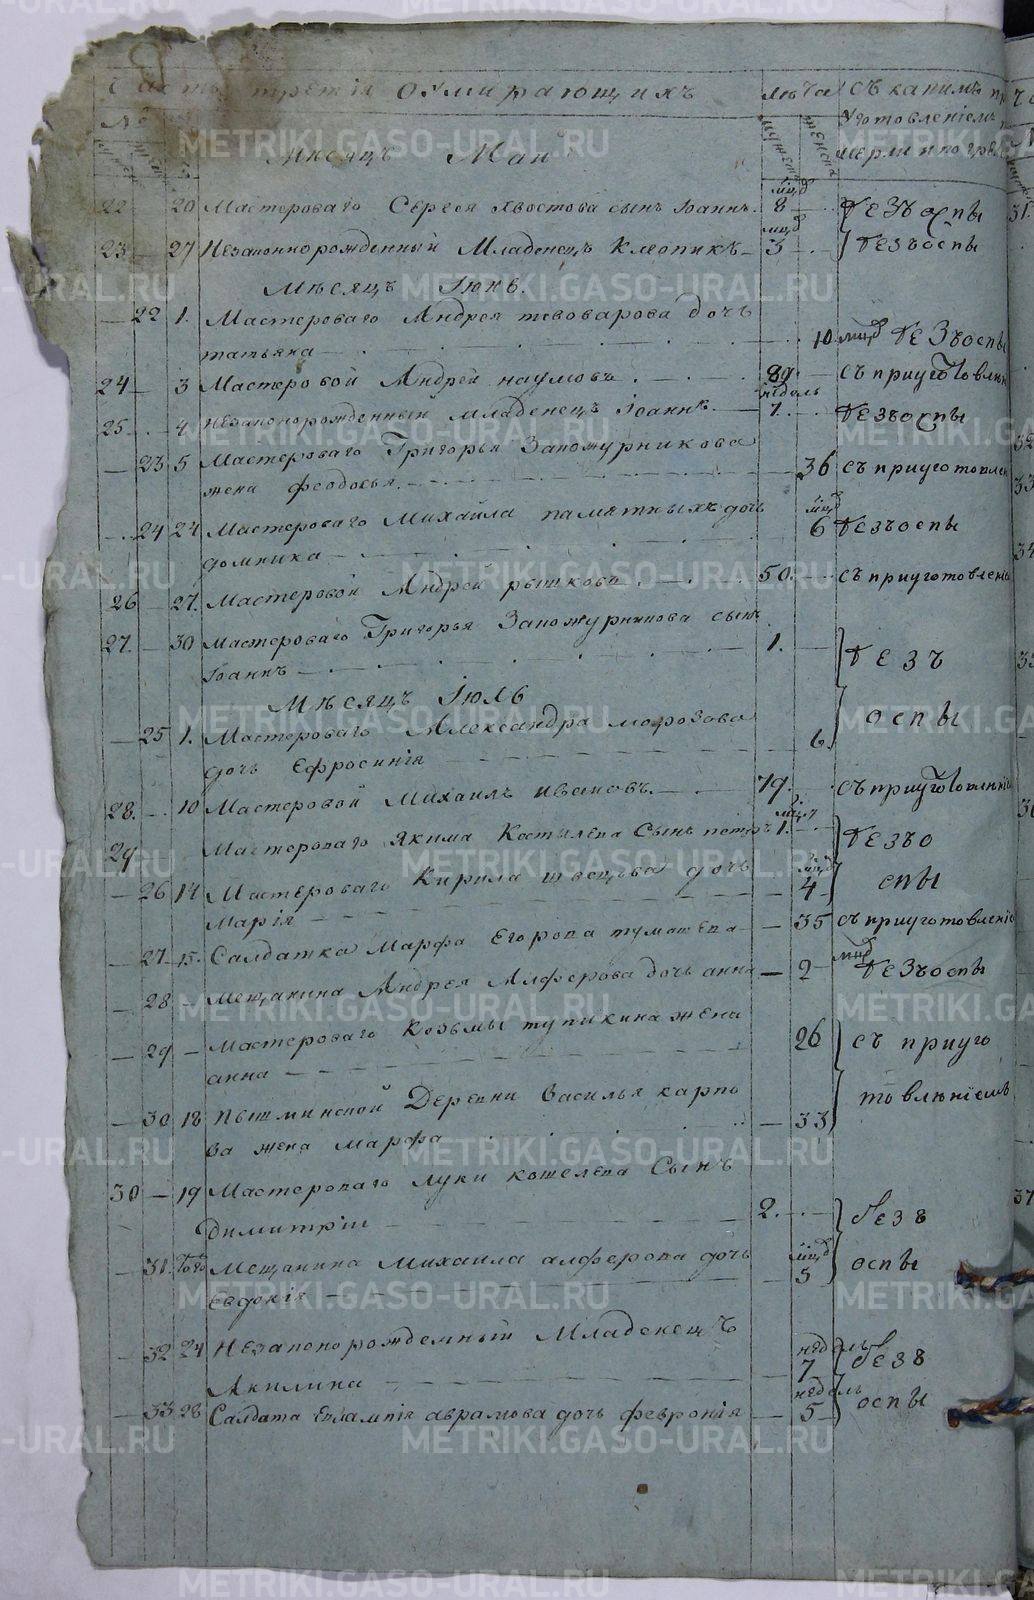 Часть третія о умирающихъ лѣта съ какимъ
уготовленіемъ
мужеска женска
Мѣсяцъ Маи
22 20 Мастероваго Сергея Хвостова сынъ Іоаннъ. мцв 8 безъ оспы
23 — 27 Незаконнорожденный Младенецъ Клеопикъ — мцв 3 безъ оспы
Мѣсяцъ Іюнь.
— 22 1. Мастероваго Андрея тевоварова дочь
татьяна — 10 мцв безъ оспы
24 — 3 Мастеровой Андрей наумовъ 89. съ приуготовлен
25. — 4 незаконорожденный младенецъ Іоаннъ. — недель 7. безъ оспы
— 23 5 Мастероваго Григорья Запожурникова
жена феодосья. 36 съ приуготовлен
— 24 24 Мастероваго Михаила памятныхъ дочь
домника — мцв 6 безъ оспы
26 — 27. Мастеровой Андрей рышковъ 50. съ приуготовлені
27. — 30 Мастероваго Григорья Запожурникова сынъ
Іоаннъ — 1. безъ
Мѣсяцъ Іюль оспы
— 25 1. Мастероваго Александра морозова
дочь Ефросинія 6.
28. — 10 Мастеровой Михаилъ ивановъ. — 79. съ приуготовленіе
29 Мастероваго Якима Костылева Сынъ петръ 1. безъ о
— 26 14 Мастероваго Кирила швецова дочь мцв 4 спы
Марія —
— 27 15. Салдатка Марфа Егорова тумашева — 35 съ приуготовленіе
28 — Мещанина Андрея Алферова дочь анна — 2 мцв безъ оспы
— 29 — Мастероваго Козьмы тупикина жена
анна — 26 съ приуго
— 30 18 Пышминской Деревни Василья карпо товленіемъ
ва жена марфа — 33
30 — 19 Мастероваго луки кошелева Сынъ
димитріи — 2. безъ
— 31. того Мещанина Михаила алферова дочь мцв 5 оспы
Евдокія —
— 32 24 Незаконорожденный Младенецъ
Акилина — недель 7 безъ
— 33 28 Салдата Евлампія аврамова дочь февронія — недель 5 оспы
METRIKI.GASO-URAL.RU